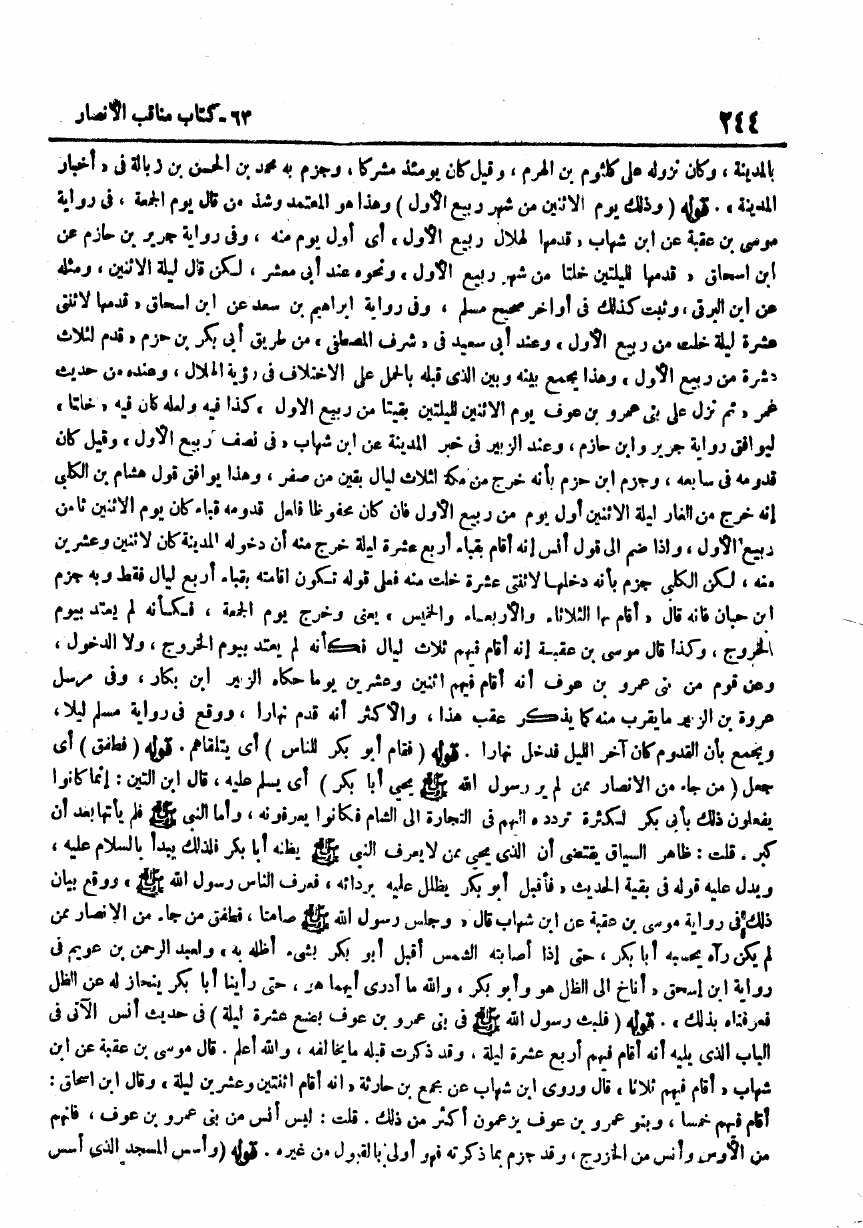 ٢٤٤
٦٣ - كتاب مناقب الأنصار
بالمدينة ، وكان نزوله على كلثوم بن الهرم ، وقيل كان يومئذ مشركا ، وجزم به محمد بن الحسن بن زبالة فى « أخبار
المدينة » . قوله ( وذلك يوم الاثنين من شهر ربيع الأول ) وهذا هو المعتمد وشذ من قال يوم الجمعة ، فى رواية
موسى بن عقبة عن ابن شهاب « قدمها لهلال ربيع الأول » أى أول يوم منه ، وفى رواية جرير بن حازم عن
ابن اسحاق « قدمها لليلتين خلتا من شهر ربيع الأول » ونحوه عند أبى معشر ، لكن قال ليلة الاثنين ، ومثله
عن ابن البرقى ، وثبت كذلك فى أواخر صحيح مسلم ، وفى رواية ابراهيم بن سعد عن ابن اسحاق « قدمها لاثنتى
عشرة ليلة خلت من ربيع الأول » وعند أبى سعيد فى « شرف المصطفى » من طريق أبى بكر بن حزم « قدم لثلاث
عشرة من ربيع الأول » وهذا يجمع بينه وبين الذى قبله بالحمل على الاختلاف فى رؤية الهلال ، وعنده من حديث
عمر « ثم نزل على بنى عمرو بن عوف يوم الاثنين لليلتين بقيتا من ربيع الاول » كذا فيه ولعله كان فيه « خلتا »
ليوافق رواية جرير وابن حازم ، وعند الزبير فى خبر المدينة عن ابن شهاب « فى نصف ربيع الأول » وقيل كان
قدومه فى سابعه ، وجزم ابن حزم بأنه خرج من مكة لثلاث ليال بقين من صفر ، وهذا يوافق قول هشام بن الكلبى
إنه خرج من الغار ليلة الاثنين أول يوم من ربيع الأول فان كان محفوظا فلعل قدومه قباء كان يوم الاثنين ثامن
ربيع الأول ، واذا ضم الى قول أنس إنه أقام بقباء أربع عشرة ليلة خرج منه أن دخوله المدينة كان لاثنين وعشرين
منه ، لكن الكلبى جزم بأنه دخلها لاثنتى عشرة خلت منه فعلى قوله تكون اقامته بقباء أربع ليال فقط وبه جزم
ابن حبان فانه قال « أقام بها الثلاثاء والأربعاء والخميس » يعنى وخرج يوم الجمعة ، فكأنه لم يعتد بيوم
الخروج ، وكذا قال موسى بن عقبة إنه أقام فيهم ثلاث ليال فكأنه لم يعتد بيوم الخروج ، ولا الدخول ،
وعن قوم من بنى عمرو بن عوف أنه أقام فيهم اثنين وعشرين يوما حكاه الزبير ابن بكار ، وفى مرسل
عروة بن الزبير ما يقرب منه كما يذكر عقب هذا ، والأكثر أنه قدم نهارا ، ووقع فى رواية مسلم ليلا ،
ويجمع بأن القدوم كان آخر الليل فدخل نهارا . قوله ( فقام أبو بكر للناس ) أى يتلقاهم . قوله ( فطفق ) أى
جعل ( من جاء من الانصار ممن لم ير رسول الله ﷺ يحيى أبا بكر ) أى يسلم عليه ، قال ابن التين : إنما كانوا
يفعلون ذلك بأبى بكر لكثرة تردده اليهم فى التجارة الى الشام فكانوا يعرفونه ، وأما النبى ﷺ فلم يأتها بعد أن
كبر . قلت : ظاهر السياق يقتضى أن الذى يحيى ممن لا يعرف النبى ﷺ يظنه أبا بكر فلذلك يبدأ بالسلام عليه ،
ويدل عليه قوله فى بقية الحديث « فأقبل أبو بكر يظلل عليه بردائه ، فعرف الناس رسول الله ﷺ » ووقع بيان
ذلك فى رواية موسى بن عقبة عن ابن شهاب قال « وجلس رسول الله ﷺ صامتا ، فطفق من جاء من الانصار ممن
لم يكن رآه يحسبه أبا بكر ، حتى إذا أصابته الشمس أقبل أبو بكر بشىء أظله به » ولعبد الرحمن بن عويم فى
رواية ابن إسحق « أناخ الى الظل هو وأبو بكر ، والله ما أدرى أيهما هو ، حتى رأينا أبا بكر ينحاز له عن الظل
فعرفناه بذلك » . قوله ( فلبث رسول الله ﷺ فى بنى عمرو بن عوف بضع عشرة ليلة ) فى حديث أنس الآتى فى
الباب الذى يليه أنه أقام فيهم أربع عشرة ليلة . وقد ذكرت قبله ما يخالفه ، والله أعلم . قال موسى بن عقبة عن ابن
شهاب « أقام فيهم ثلاثا » قال وروى ابن شهاب عن مجمع بن حارثة « انه أقام اثنتين وعشرين ليلة » وقال ابن اسحاق :
أقام فيهم خمسا ، وبنو عمرو بن عوف يزعمون أكثر من ذلك . قلت : ليس أنس من بنى عمرو بن عوف ، فانهم
من الأوس وأنس من الخزرج ، وقد جزم بما ذكرته فهو أولى بالقبول من غيره . قوله ( وأسس المسجد الذى أسس